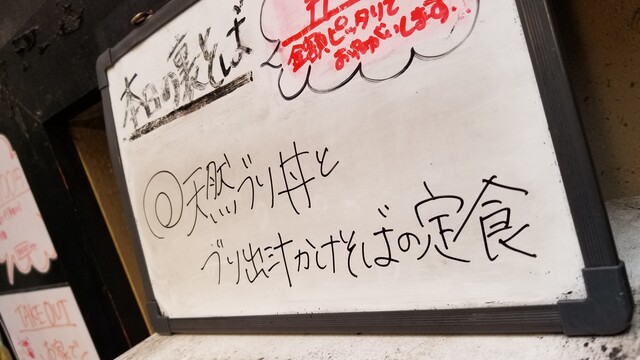 本日の裏そば
金額ピッタリで
お願いします!
◎天然ぶり丼と
ぶり出汁かけそばの定食
TAKE OUT